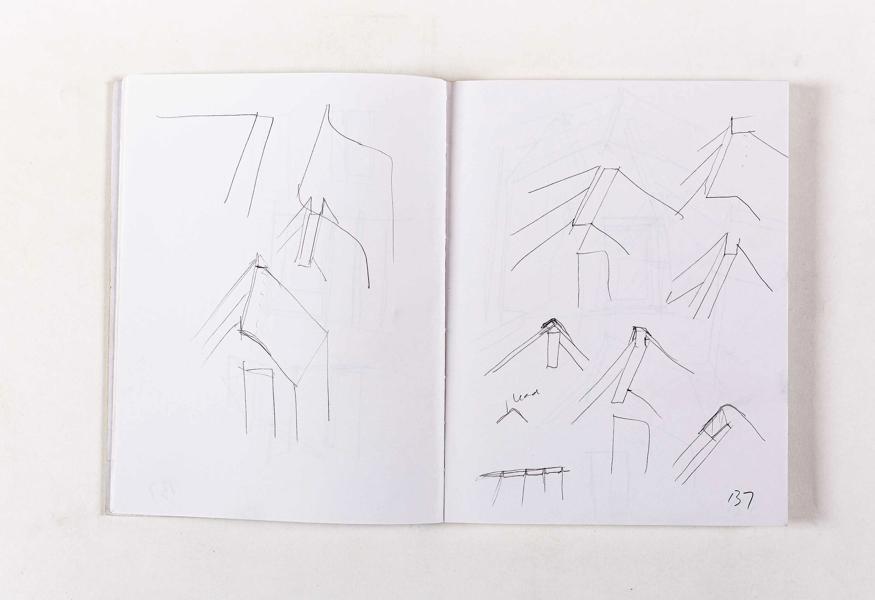 lead
137